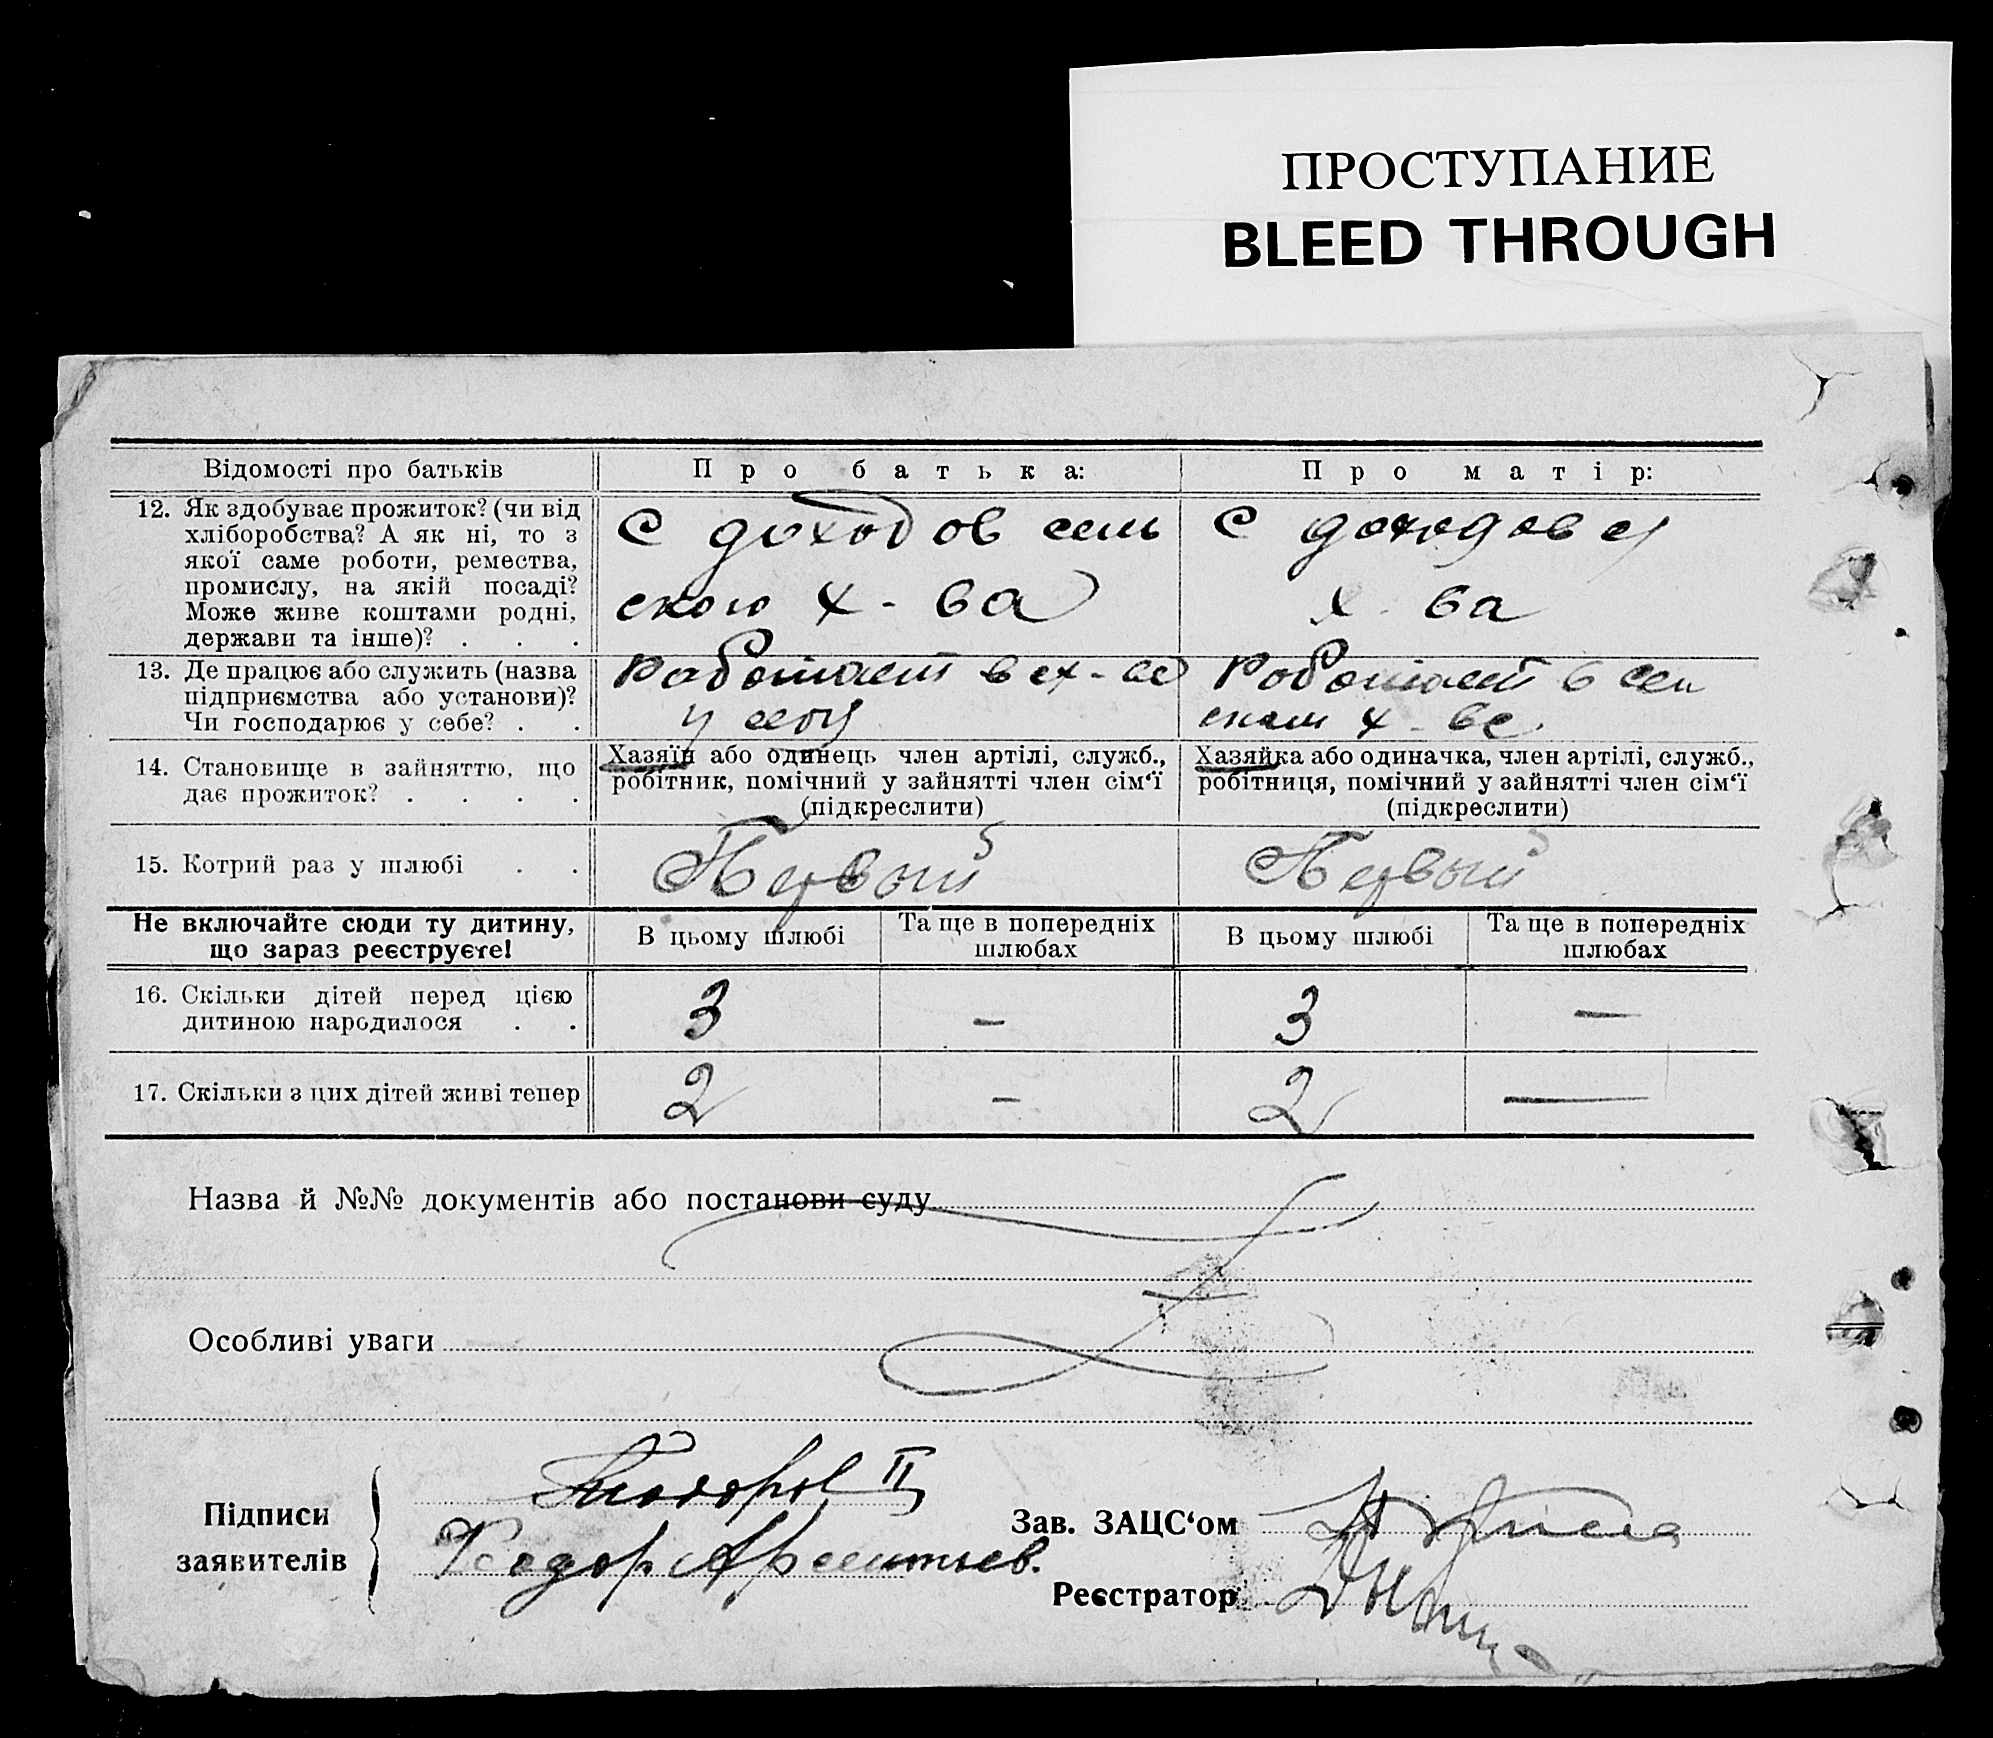 ПРОСТУПАНИЕ
BLEED THROUGH
Відомості про батьків
Про батька:
Про матір:
12. Як здобуває прожиток? (чи від
хліборобства? А як ні, то з
якої саме роботи, ремества,
промислу, на якій посаді?
Може живе коштами родні,
держави та інше)? . . .
С доходов сель
ского х-ва
С доходов с/
х-ва
13. Де працює або служить (назва
підприємства або установи)?
Чи господарює у себе? . .
Работает в сх-ве
у себя
Работает в сель
ском х-ве.
14. Становище в зайняттю, що
дає прожиток? . . . .
Хазяїн або одинець член артілі, служб.,
робітник, помічний у зайнятті член сім‘ї
(підкреслити)
Хазяйка або одиначка, член артілі, служб.,
робітниця, помічний у зайнятті член сім‘ї
(підкреслити)
15. Котрий раз у шлюбі . .
Первый
Первый
Не включайте сюди ту дитину,
що зараз реєструєте!
В цьому шлюбі
Та ще в попередніх
шлюбах
В цьому шлюбі
Та ще в попередніх
шлюбах
16. Скільки дітей перед цією
дитиною народилося . .
3
–
3
—
17. Скільки з цих дітей живі тепер
2
–
2
—
Назва й №№ документів або постанови суду
Особливі уваги
Підписи
заявителів
II
Зав. ЗАЦС‘ом
Реєстратор